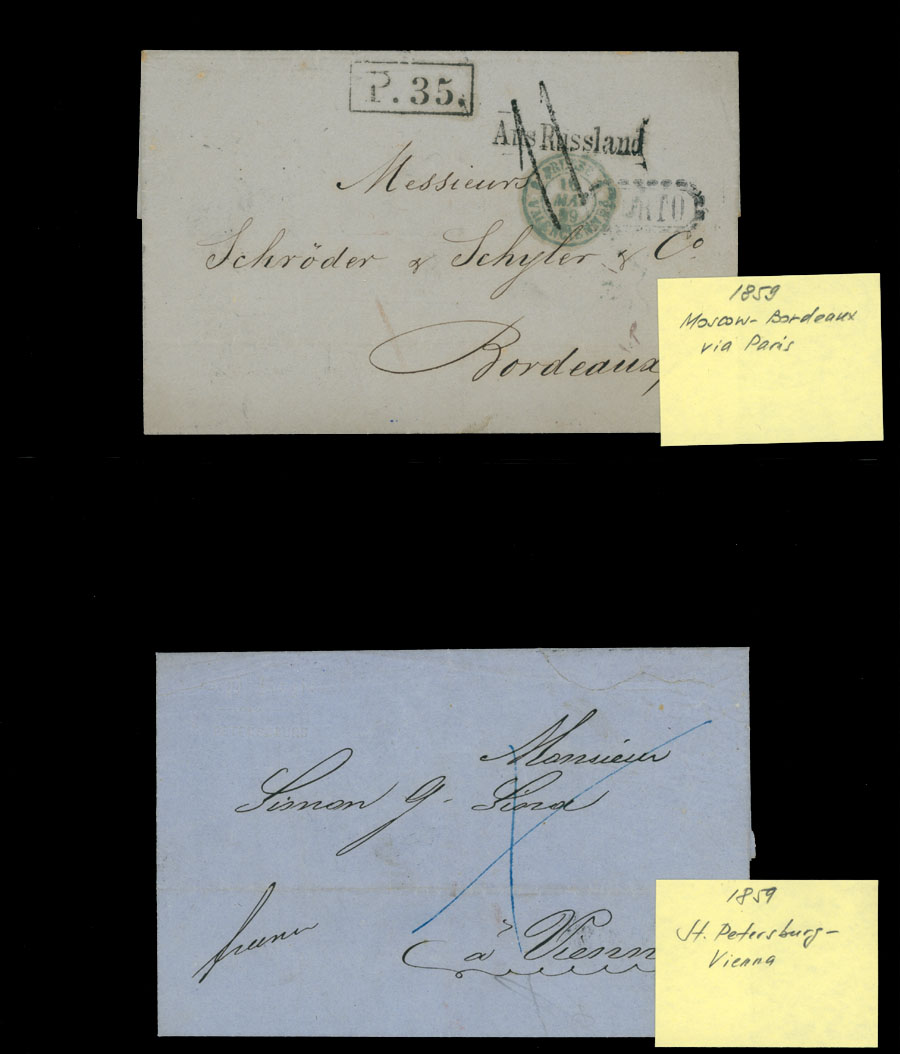 P. 35.
Aus Russland
Messieurs
16
MAI
59
Schröder & Schyler & Cº
Bordeaux
1859
Moscow - Bordeaux
via Paris
Monsieur
Simon G. Sina
franco
à Vienn
1859
St. Petersburg -
Vienna